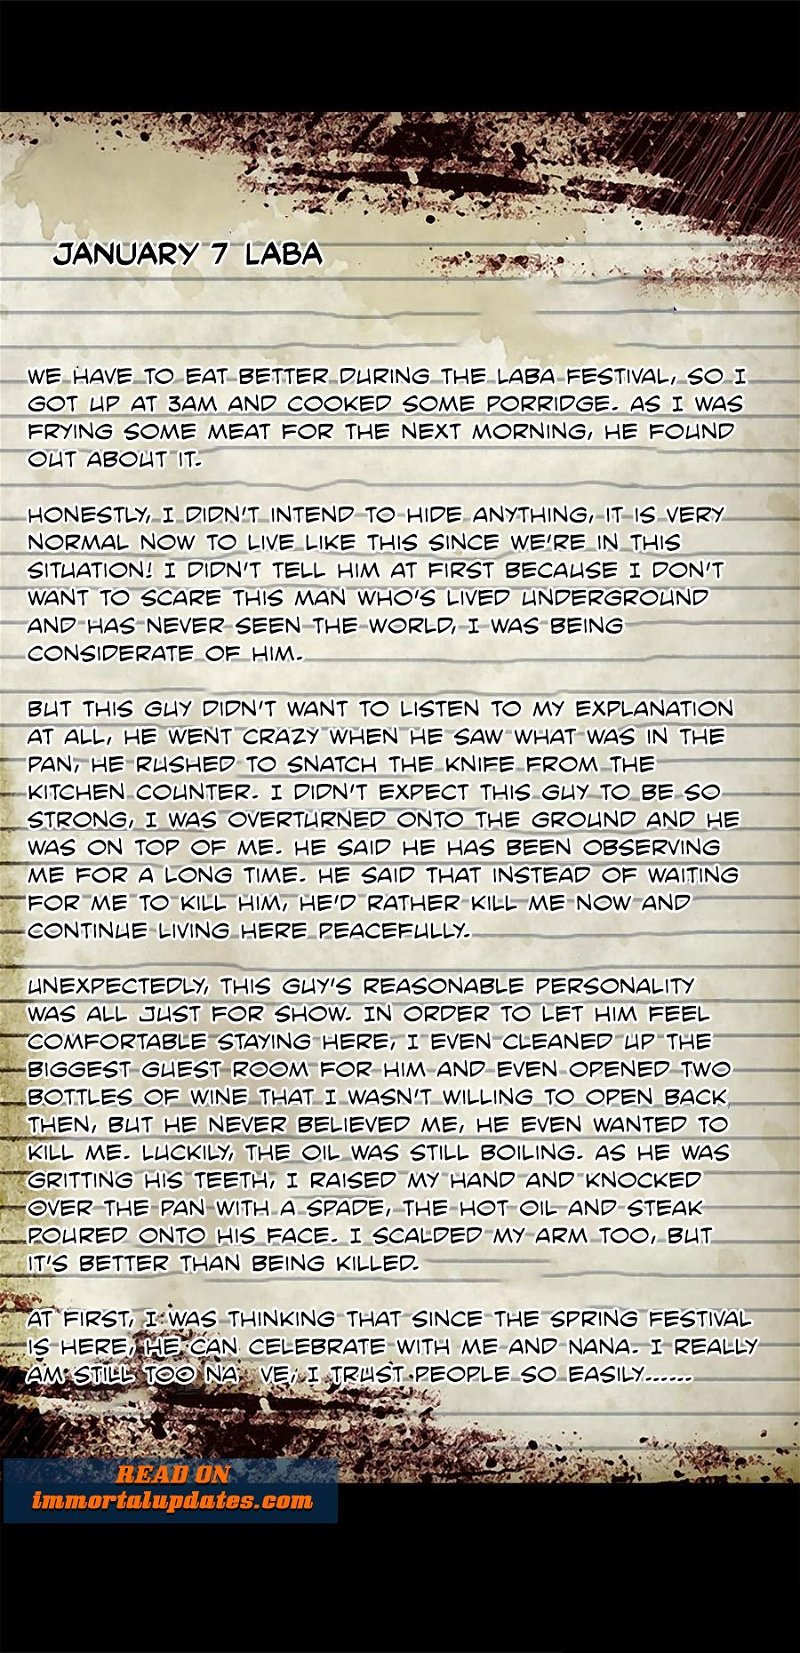 JANUARY 7 LABA
WE HAVE TO EAT BETTER DURING THE LABA FESTIVAL, SO I
GOT UP AT 3AM AND COOKED SOME PORRIDGE. AS I WAS
FRYING SOME MEAT FOR THE NEXT MORNING, HE FOUND
OUT ABOUT IT.
HONESTLY, I DIDN'T INTEND TO HIDE ANYTHING, IT IS VERY
NORMAL NOW TO LIVE LIKE THIS SINCE WE'RE IN THIS
SITUATION! I DIDN'T TELL HIM AT FIRST BECAUSE I DON'T
WANT TO SCARE THIS MAN WHO'S LIVED UNDERGROUND
AND HAS NEVER SEEN THE WORLD, I WAS BEING
CONSIDERATE OF HIM.
BUT THIS GUY DIDN'T WANT TO LISTEN TO MY EXPLANATION
AT ALL, HE WENT CRAZY WHEN HE SAW WHAT WAS IN THE
PAN, HE RUSHED TO SNATCH THE KNIFE FROM THE
KITCHEN COUNTER. I DIDN'T EXPECT THIS GUY TO BE SO
STRONG, I WAS OVERTURNED ONTO THE GROUND AND HE
WAS ON TOP OF ME. HE SAID HE HAS BEEN OBSERVING
ME FOR A LONG TIME. HE SAID THAT INSTEAD OF WAITING
FOR ME TO KILL HIM, HE'D RATHER KILL ME NOW AND
CONTINUE LIVING HERE PEACEFULLY.
UNEXPECTEDLY, THIS GUY'S REASONABLE PERSONALITY
WAS ALL JUST FOR SHOW. IN ORDER TO LET HIM FEEL
COMFORTABLE STAYING HERE, I EVEN CLEANED UP THE
BIGGEST GUEST ROOM FOR HIM AND EVEN OPENED TWO
BOTTLES OF WINE THAT I WASN'T WILLING TO OPEN BACK
THEN, BUT HE NEVER BELIEVED ME, HE EVEN WANTED TO
KILL ME. LUCKILY, THE OIL WAS STILL BOILING. AS HE WAS
GRITTING HIS TEETH, I RAISED MY HAND AND KNOCKED
OVER THE PAN WITH A SPADE, THE HOT OIL AND STEAK
POURED ONTO HIS FACE. I SCALDED MY ARM TOO, BUT
IT'S BETTER THAN BEING KILLED.
AT FIRST, I WAS THINKING THAT SINCE THE SPRING FESTIVAL
IS HERE, HE CAN CELEBRATE WITH ME AND NANA. I REALLY
AM STILL TOO NA VE, I TRUST PEOPLE SO EASILY......
READ ON
immortalupdates.com